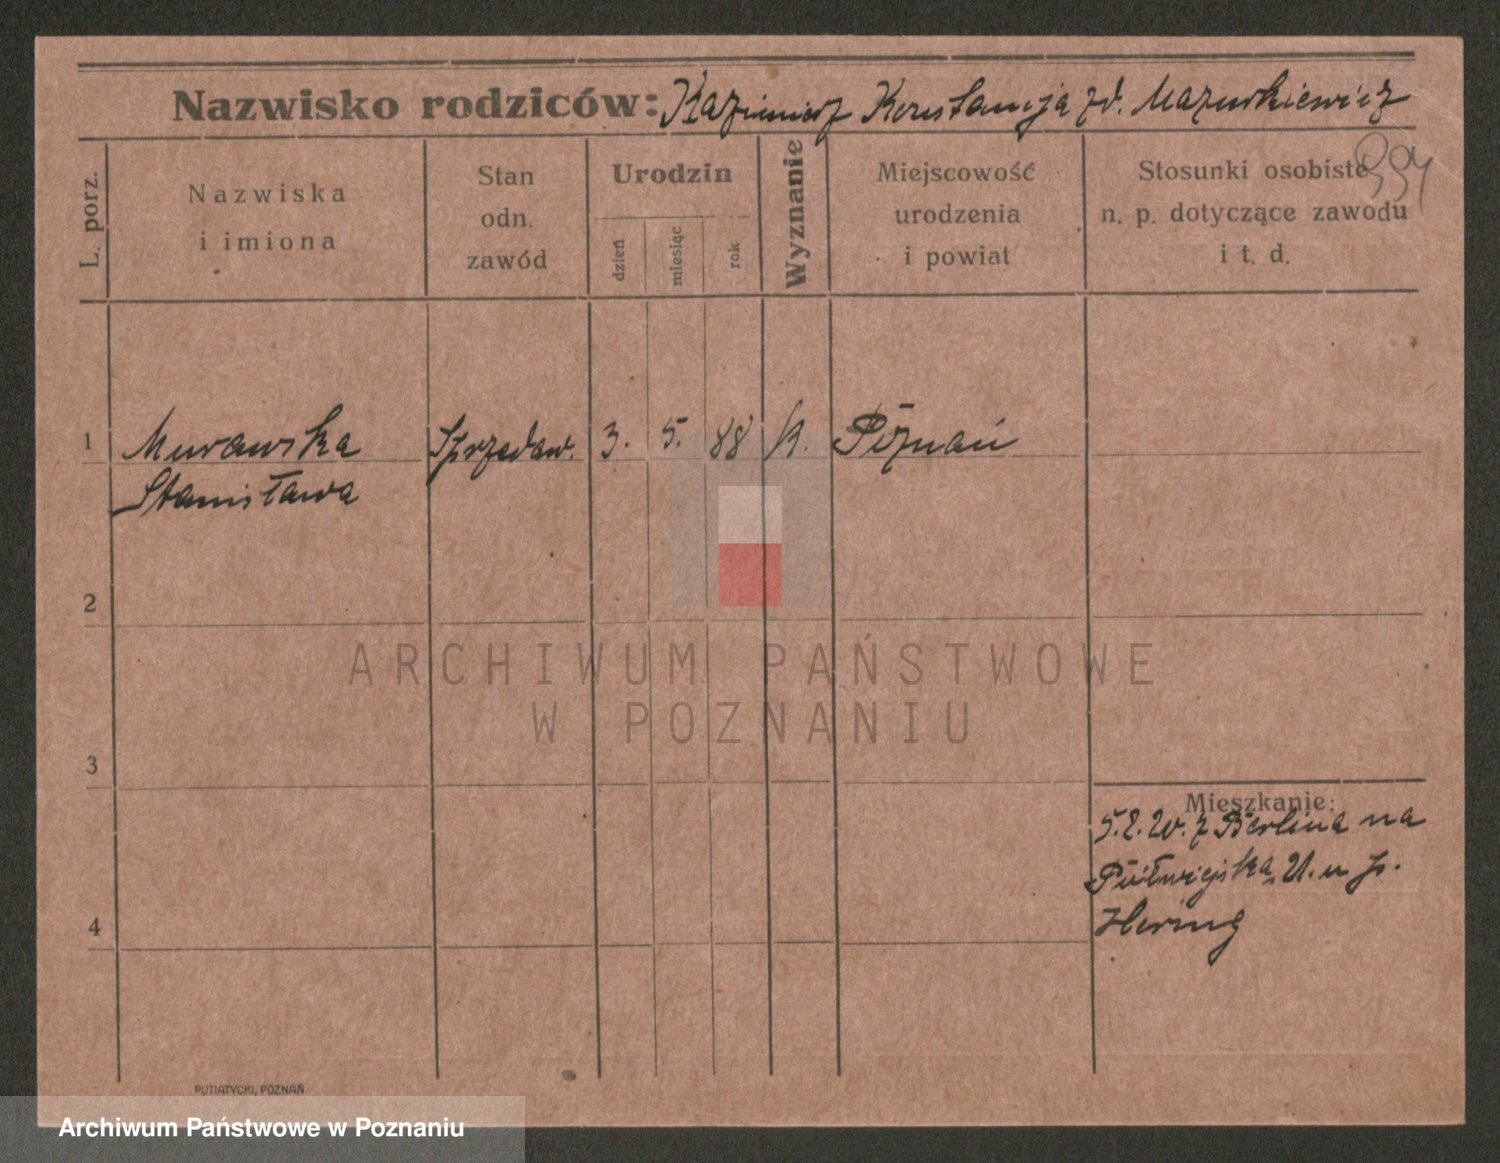 Nazwisko rodziców: Kazimierz Konstancja zd. Mazurkiewicz
994
L. porz.
Nazwiska
i imiona
Stan
odn.
zawód
Urodzin
dzień
miesiąc
rok
Wyznanie
Miejscowość
urodzenia
i powiat
Stosunki osobiste
n. p. dotyczące zawodu
i t. d.
1
Murawska
Stanisława
Sprzedaw.
3.
5.
88
k.
Poznań
2
3
4
Mieszkanie:
5.2.20. z Berlina na
Półwiejska 21. u p.
Hering
ARCHIWUM PAŃSTWOWE
W POZNANIU
PUTIATYCKI, POZNAŃ
Archiwum Państwowe w Poznaniu